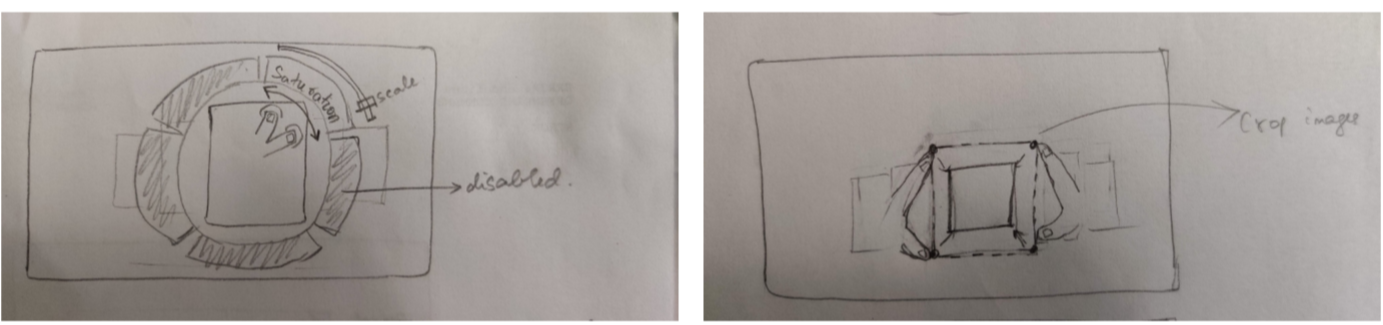 Saturation
scale
disabled.
Crop images